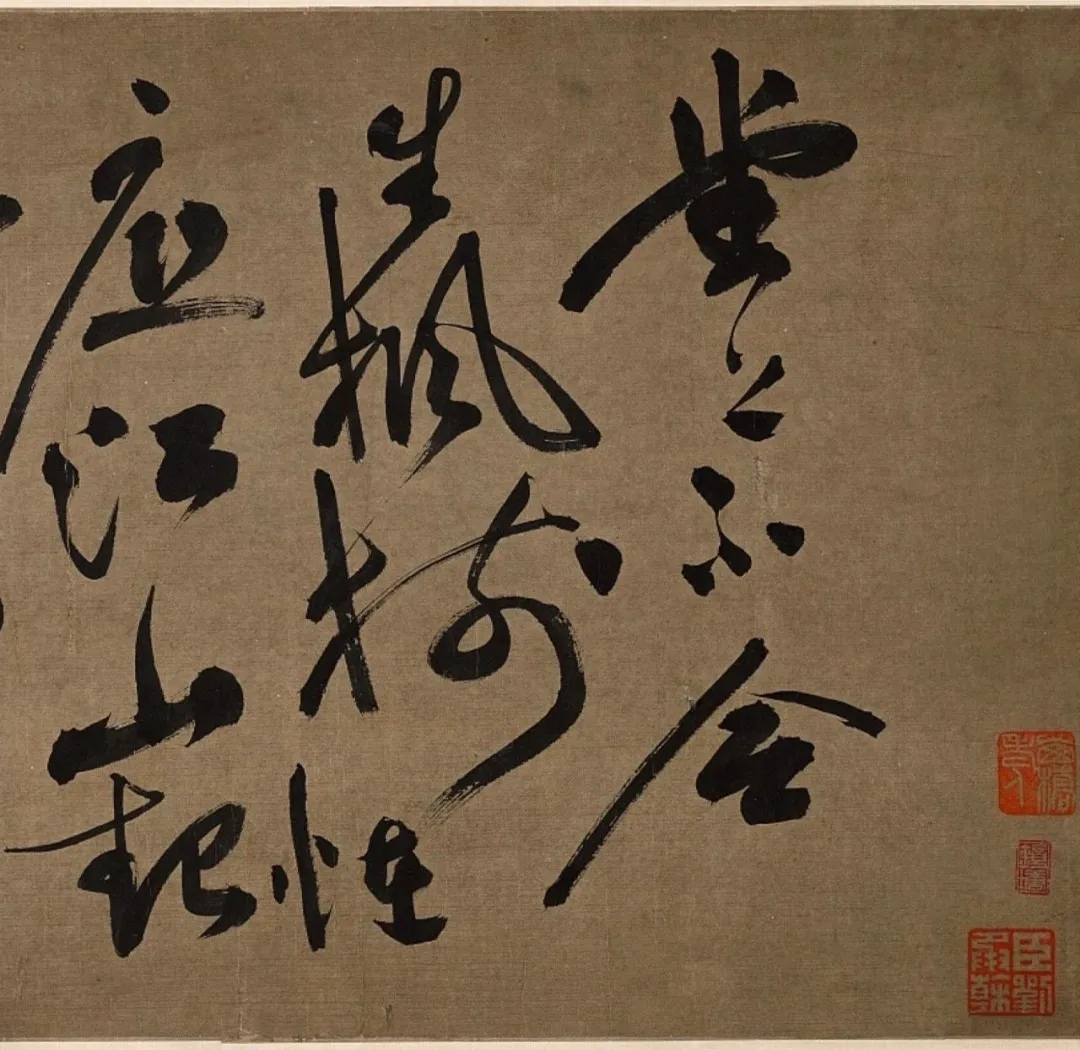 堂上不合
生楓樹恠
底江山起